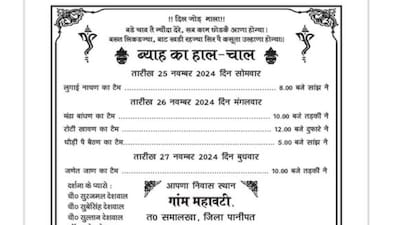 !! दिल जोड़ माला!!
बडे चाव तै न्यौंदा देरे, सब काम छोडकै आणा होन्या।
बख्त लिकडज्या, बाट खडी रहज्या सिर पै कसूता उल्हाणा होन्या॥
ब्याह का हाल-चाल
तारीख 25 नवम्बर 2024 दिन सोमवार
लुगाई नाचण का टैम 8.00 बजे सांझ ने
तारीख 26 नवम्बर 2024 दिन मंगलवार
मंढा बांधण का टैम 10.00 बजे तड़की ने
रोटी खावण का टैम 12.00 बजे दुफारे ने
घोड़ी पै बैठण का टैम 5.00 बजे सांझ ने
तारीख 27 नवम्बर 2024 दिन बुधवार
जणेत जाण का टैम 10.00 बजे तड़की ने
दर्शना के प्यासे :
चौ० सुरजमल देशवाल
चौ० सुबेसिंह देशवाल
चौ० सुल्तान देशवाल
आपणा निवास स्थान
गांम महावटी,
त0 समालखा, जिला पानीपत